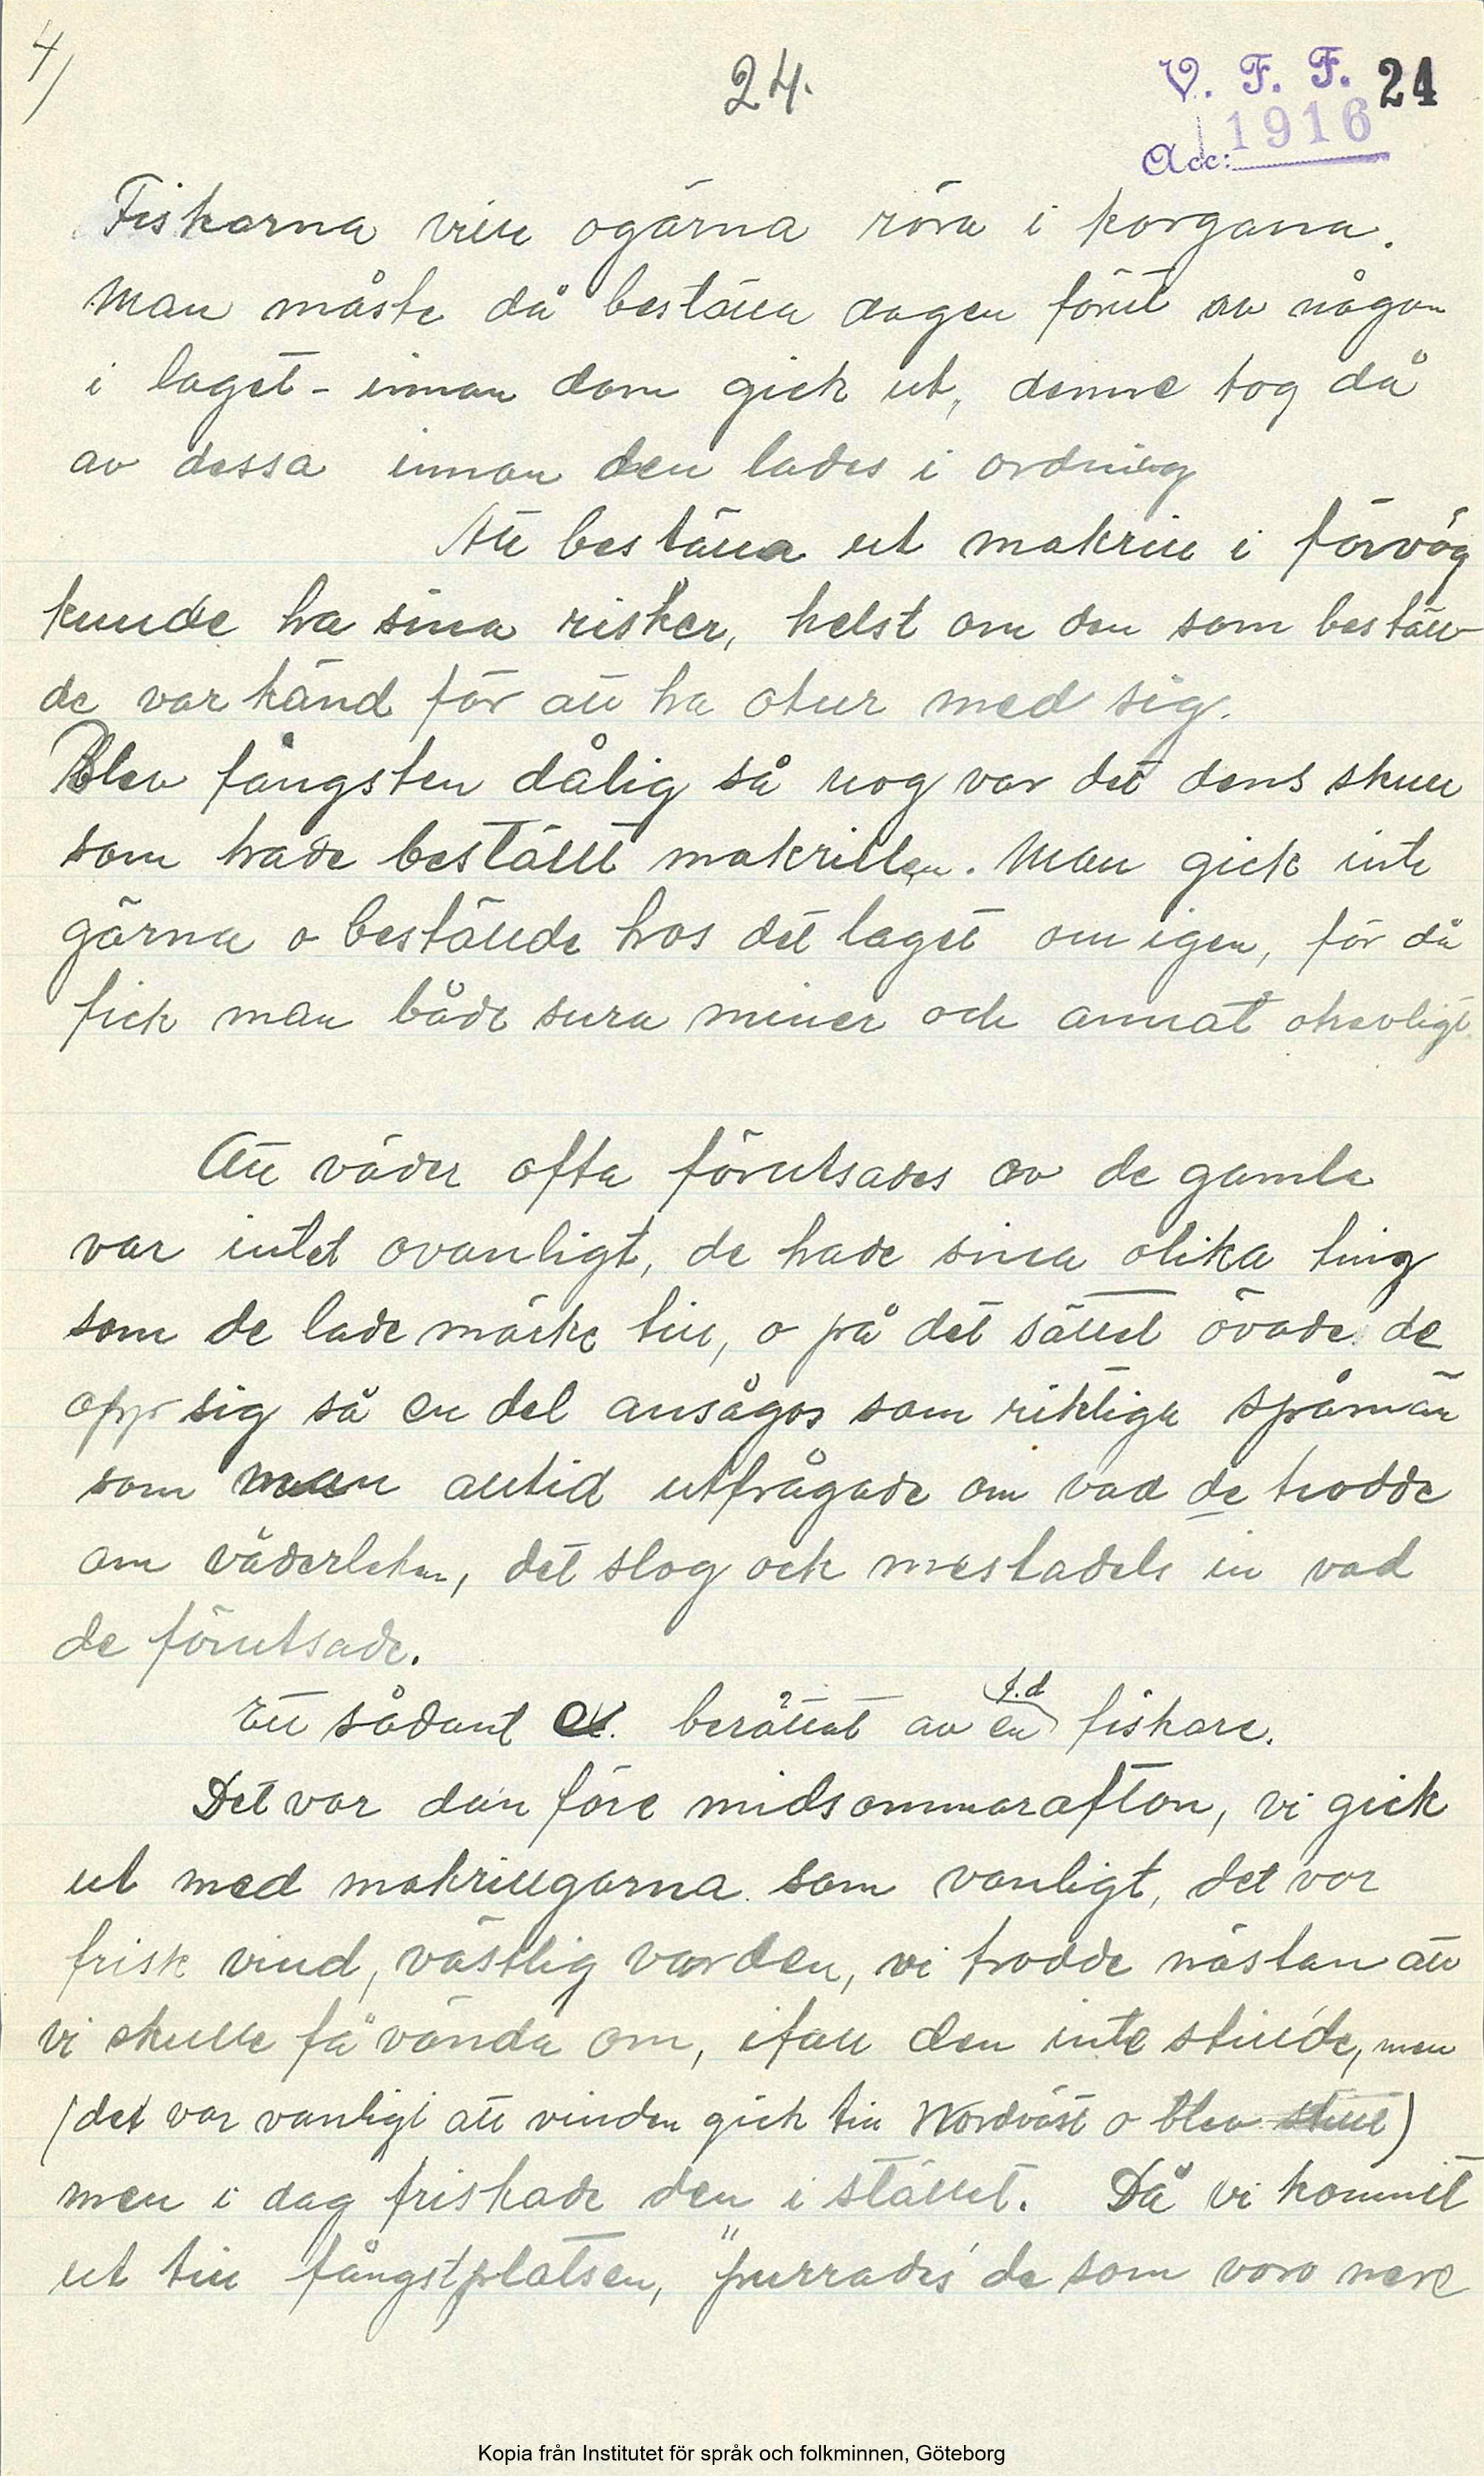 4/
24.
V. F. F. 24
Acc: 1916
Fiskarna ville ogärna röra i korgarna.
Man måste då beställa dagen förut av någon
i laget - innan dom gick ut, denne tog då
av dessa innan den lades i ordning
Att beställa ut makrill i förväg
kunde ha sina risker, helst om den som beställ-
de var känd för att ha otur med sig.
Blev fångsten dålig så nog var det dens skull
som hade beställt makrillen. Man gick inte
gärna o beställde hos det laget om igen, för då
fick man både sura miner och annat otrevligt.
Att väder ofta förutsades av de gamla
var intet ovanligt, de hade sina olika ting
som de lade märke till, o på det sättet övade de
opp sig så en del ansågos som riktiga spåmän
som man alltid utfrågade om vad de trodde
om väderleken, det slog ock mestadels in vad
de förutsade.
Ett sådant ex. berättat av en f.d fiskare.
Det var dan före midsommarafton, vi gick
ut med makrillgarna som vanligt, det var
frisk vind, västlig var den, vi trodde nästan att
vi skulle få vända om, ifall den inte stillde, men
(det var vanligt att vinden gick till Nordväst o blev still)
men i dag friskade den i stället. Då vi kommit
ut till fångstplatsen, "purrades" de som voro nere
Kopia från Institutet för språk och folkminnen, Göteborg